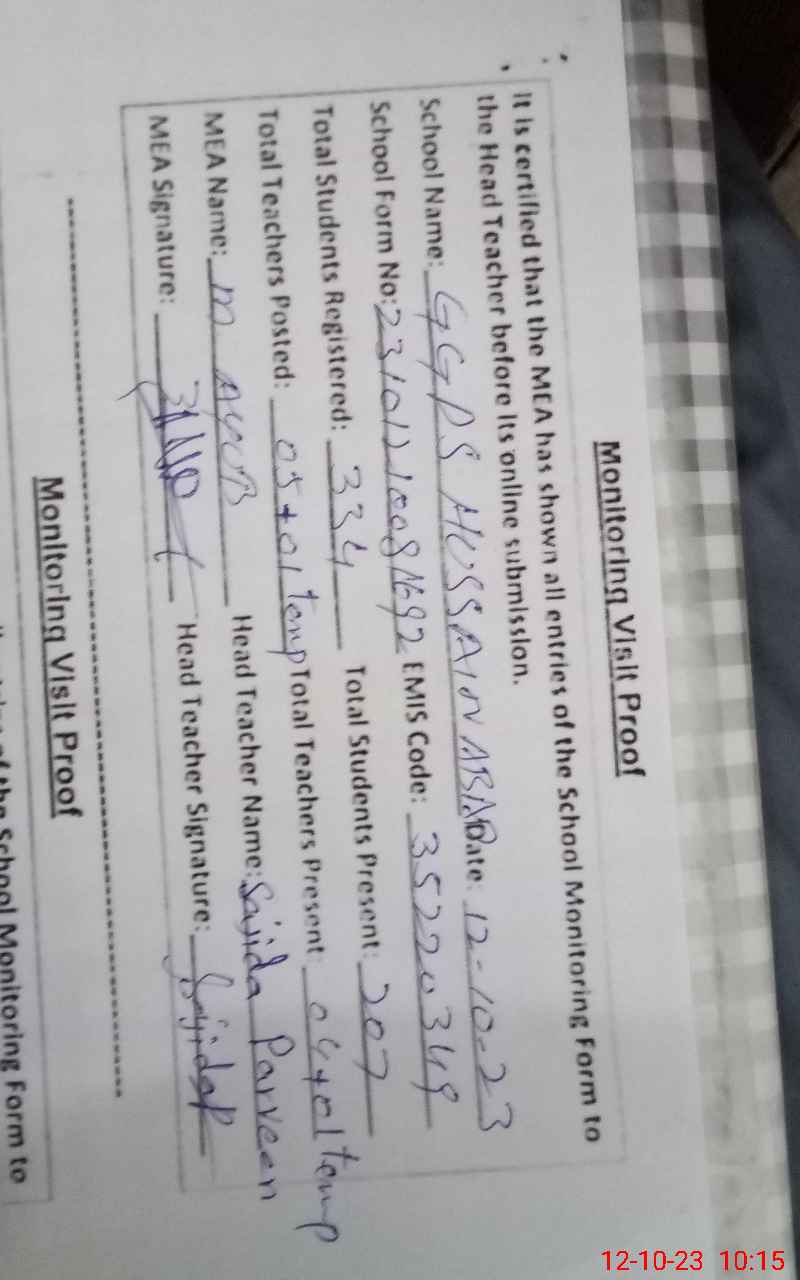 Monitoring Visit Proof
It is certified that the MEA has shown all entries of the School Monitoring Form to
the Head Teacher before its online submission.
School Name: GGPS HUSSAIN ABAD Date: 12-10-23
School Form No: EMIS Code: 35220349
Total Students Registered: 334 Total Students Present: 207
Total Teachers Posted: 05+01 temp Total Teachers Present: 04+01 temp
MEA Name: M AYUB Head Teacher Name: Sajida Parveen
MEA Signature: Head Teacher Signature: SajidaP
Monitoring Visit Proof
of the School Monitoring Form to
12-10-23 10:15